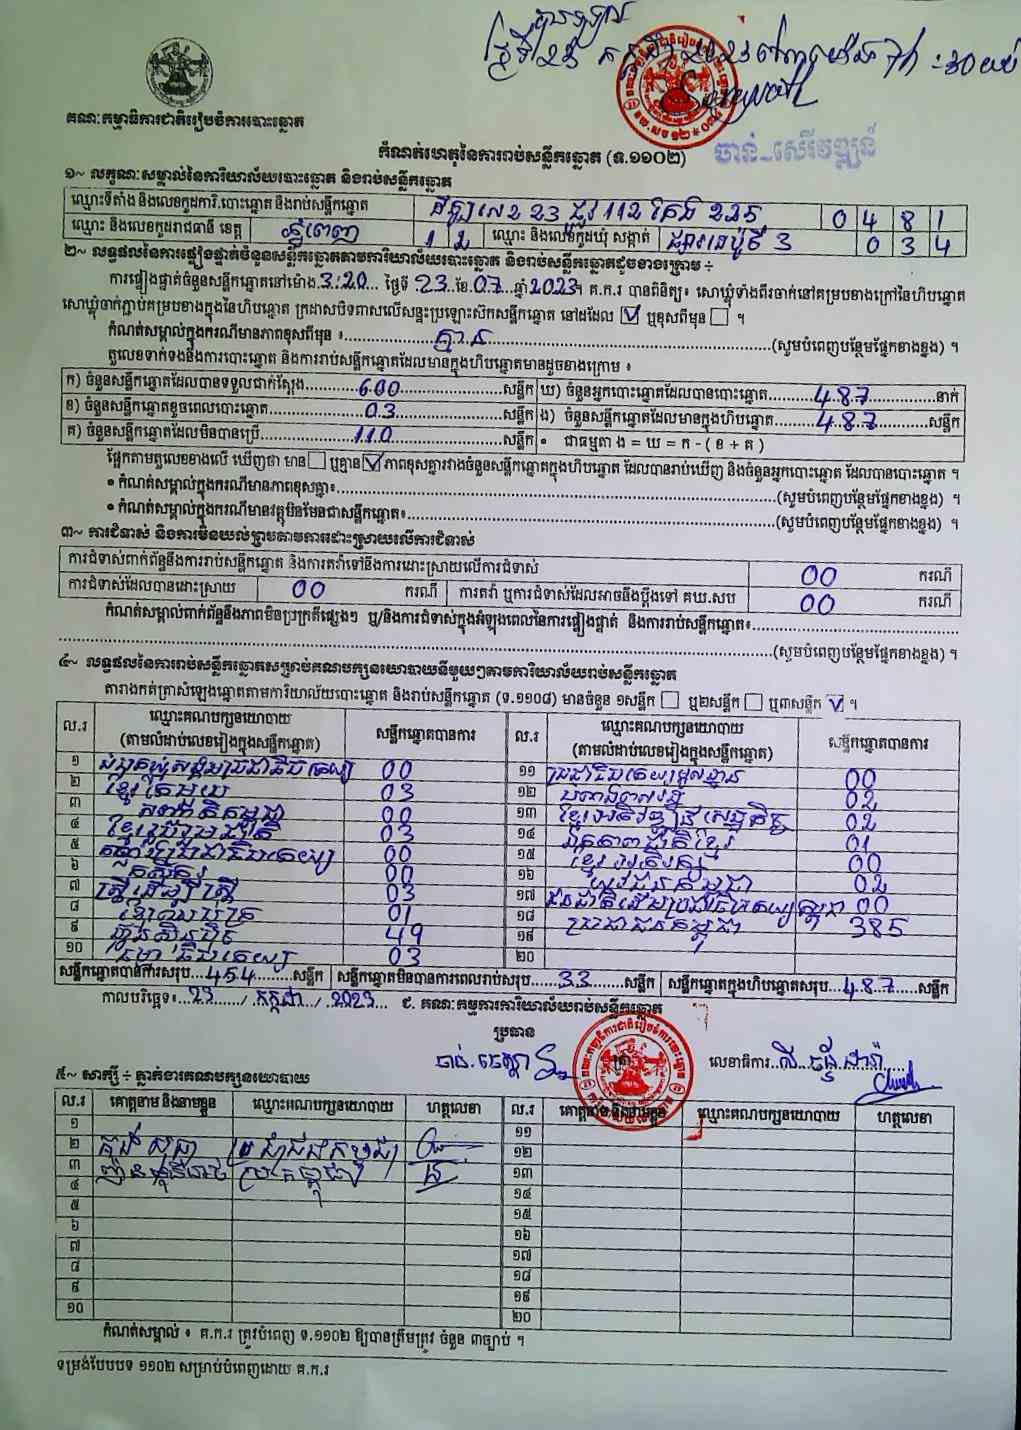 ថ្ងៃទី 23 កក្កដា 2023 វេលាម៉ោង 7h : 30 យប់
គណៈកម្មាធិការជាតិរៀបចំការបោះឆ្នោត
កំណត់ហេតុនៃការរាប់សន្លឹកឆ្នោត (ទ.១១០២)
ចាន់ សេរីវឌ្ឍន៍
១~ លក្ខណៈសម្គាល់នៃការិយាល័យបោះឆ្នោត និងរាប់សន្លឹកឆ្នោត
ឈ្មោះទីតាំង និងលេខកូដការិ.បោះឆ្នោត និងរាប់សន្លឹកឆ្នោត លេខ 23 ផ្លូវ 112 កែង 225 0 4 8 1
ឈ្មោះ និងលេខកូដរាជធានី ខេត្ត ភ្នំពេញ 1 2 ឈ្មោះ និងលេខកូដឃុំ សង្កាត់ ផ្សារដេប៉ូទី 3 0 3 4
២~ លទ្ធផលនៃការផ្ទៀងផ្ទាត់ចំនួនសន្លឹកឆ្នោតតាមការិយាល័យបោះឆ្នោត និងរាប់សន្លឹកឆ្នោតដូចខាងក្រោម ÷
ការផ្ទៀងផ្ទាត់ចំនួនសន្លឹកឆ្នោតនៅម៉ោង 3:20 ថ្ងៃទី 23 ខែ 07 ឆ្នាំ 2023។ គ.ក.រ បានពិនិត្យ៖ សោឃ្មុំទាំងពីរចាក់នៅគម្របខាងក្រៅនៃហិបឆ្នោត
សោឃ្មុំចាក់ភ្ជាប់គម្របខាងក្នុងនៃហិបឆ្នោត ក្រដាសបិទពាសលើសន្ទះប្រឡោះស៊កសន្លឹកឆ្នោត នៅដដែល ☑ ឬខុសពីមុន ☐ ។
កំណត់សម្គាល់ក្នុងករណីមានភាពខុសពីមុន ៖ គ្មាន (សូមបំពេញបន្ថែមផ្នែកខាងខ្នង) ។
តួលេខទាក់ទងនឹងការបោះឆ្នោត និងការរាប់សន្លឹកឆ្នោតដែលមានក្នុងហិបឆ្នោតមានដូចខាងក្រោម ៖
ក) ចំនួនសន្លឹកឆ្នោតដែលបានទទួលជាក់ស្តែង 600 សន្លឹក ឃ) ចំនួនអ្នកបោះឆ្នោតដែលបានបោះឆ្នោត 487 នាក់
ខ) ចំនួនសន្លឹកឆ្នោតខូចពេលបោះឆ្នោត 03 សន្លឹក ង) ចំនួនសន្លឹកឆ្នោតដែលមានក្នុងហិបឆ្នោត 487 សន្លឹក
គ) ចំនួនសន្លឹកឆ្នោតដែលមិនបានប្រើ 110 សន្លឹក • ជាធម្មតា ង = ឃ = ក - ( ខ + គ )
ផ្អែកតាមតួលេខខាងលើ ឃើញថា មាន ☐ ឬគ្មាន ☑ ភាពខុសគ្នារវាងចំនួនសន្លឹកឆ្នោតក្នុងហិបឆ្នោត ដែលបានរាប់ឃើញ និងចំនួនអ្នកបោះឆ្នោត ដែលបានបោះឆ្នោត ។
• កំណត់សម្គាល់ក្នុងករណីមានភាពខុសគ្នា៖ (សូមបំពេញបន្ថែមផ្នែកខាងខ្នង) ។
• កំណត់សម្គាល់ក្នុងករណីមានវត្ថុមិនមែនជាសន្លឹកឆ្នោត៖ (សូមបំពេញបន្ថែមផ្នែកខាងខ្នង) ។
៣~ ការជំទាស់ និងការមិនយល់ព្រមតាមការដោះស្រាយលើការជំទាស់
ការជំទាស់ពាក់ព័ន្ធនឹងការរាប់សន្លឹកឆ្នោត និងការតវ៉ាទៅនឹងការដោះស្រាយលើការជំទាស់ 00 ករណី
ការជំទាស់ដែលបានដោះស្រាយ 00 ករណី ការតវ៉ា ឬការជំទាស់ដែលអាចនឹងប្តឹងទៅ គឃ.សប 00 ករណី
កំណត់សម្គាល់ពាក់ព័ន្ធនឹងភាពមិនប្រក្រតីផ្សេងៗ ឬ/និងការជំទាស់ក្នុងអំឡុងពេលនៃការផ្ទៀងផ្ទាត់ និងការរាប់សន្លឹកឆ្នោត៖
(សូមបំពេញបន្ថែមផ្នែកខាងខ្នង) ។
៤~ លទ្ធផលនៃការរាប់សន្លឹកឆ្នោតសម្រាប់គណបក្សនយោបាយនីមួយៗតាមការិយាល័យរាប់សន្លឹកឆ្នោត
តារាងកត់ត្រាសំឡេងឆ្នោតតាមការិយាល័យបោះឆ្នោត និងរាប់សន្លឹកឆ្នោត (ទ.១១០៨) មានចំនួន ១សន្លឹក ☐ ឬ២សន្លឹក ☐ ឬ៣សន្លឹក ☑ ។
ល.រ ឈ្មោះគណបក្សនយោបាយ (តាមលំដាប់លេខរៀងក្នុងសន្លឹកឆ្នោត) សន្លឹកឆ្នោតបានការ ល.រ ឈ្មោះគណបក្សនយោបាយ (តាមលំដាប់លេខរៀងក្នុងសន្លឹកឆ្នោត) សន្លឹកឆ្នោតបានការ
១ សំបុកឃ្មុំសង្គមប្រជាធិបតេយ្យ 00 ១១ ប្រជាធិបតេយ្យមូលដ្ឋាន 00
២ ខ្មែរតែមួយ 03 ១២ 02
៣ កម្ពុជា 00 ១៣ ខ្មែរអភិវឌ្ឍន៍សេដ្ឋកិច្ច 02
៤ ខ្មែររួបរួមជាតិ 03 ១៤ ឯកភាពជាតិខ្មែរ 01
៥ ប្រជាធិបតេយ្យ 00 ១៥ ខ្មែរអភិរក្ស 00
៦ កសិករ 00 ១៦ យុវជនកម្ពុជា 02
៧ ស្ត្រីដើម្បីស្ត្រី 03 ១៧ ជនជាតិដើមប្រជាធិបតេយ្យកម្ពុជា 00
៨ 01 ១៨ ប្រជាជនកម្ពុជា 385
៩ ហ្វ៊ុនស៊ិនប៉ិច 49 ១៩
១០ ធម្មាធិបតេយ្យ 03 ២០
សន្លឹកឆ្នោតបានការសរុប 454 សន្លឹក សន្លឹកឆ្នោតមិនបានការពេលរាប់សរុប 33 សន្លឹក សន្លឹកឆ្នោតក្នុងហិបឆ្នោតសរុប 487 សន្លឹក
កាលបរិច្ឆេទ៖ 23 / កក្កដា / 2023 ៩. គណៈកម្មការការិយាល័យរាប់សន្លឹកឆ្នោត
ប្រធាន
លេខាធិការ
៥~ សាក្សី ÷ ភ្នាក់ងារគណបក្សនយោបាយ
ល.រ គោត្តនាម និងនាមខ្លួន ឈ្មោះគណបក្សនយោបាយ ហត្ថលេខា ល.រ គោត្តនាម និងនាមខ្លួន ឈ្មោះគណបក្សនយោបាយ ហត្ថលេខា
១ ១១
២ ប្រជាជនកម្ពុជា ១២
៣ ១៣
៤ ១៤
៥ ១៥
៦ ១៦
៧ ១៧
៨ ១៨
៩ ១៩
១០ ២០
កំណត់សម្គាល់ ៖ គ.ក.រ ត្រូវបំពេញ ទ.១១០២ ឱ្យបានត្រឹមត្រូវ ចំនួន ៣ច្បាប់ ។
ទម្រង់បែបបទ ១១០២ សម្រាប់បំពេញដោយ គ.ក.រ